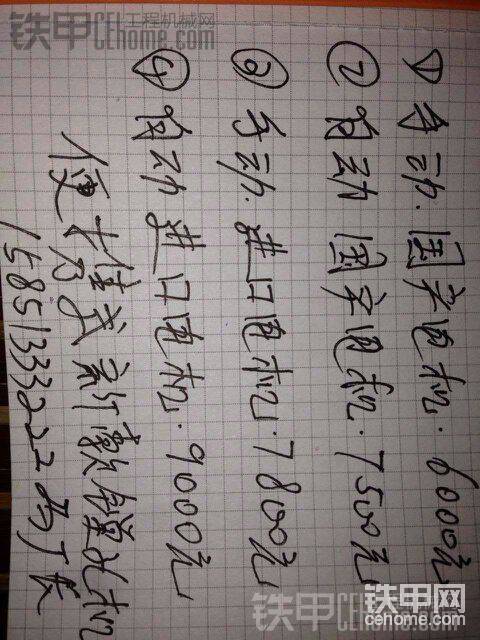 ① 手动.国产电机.6000元
② 自动 国产电机.7500元
③ 手动.进口电机.7800元
④ 自动 进口电机.9000元
便携式新款镗孔机
15851333222
铁甲工程机械网
CEhome.com
铁甲网
cehome.com